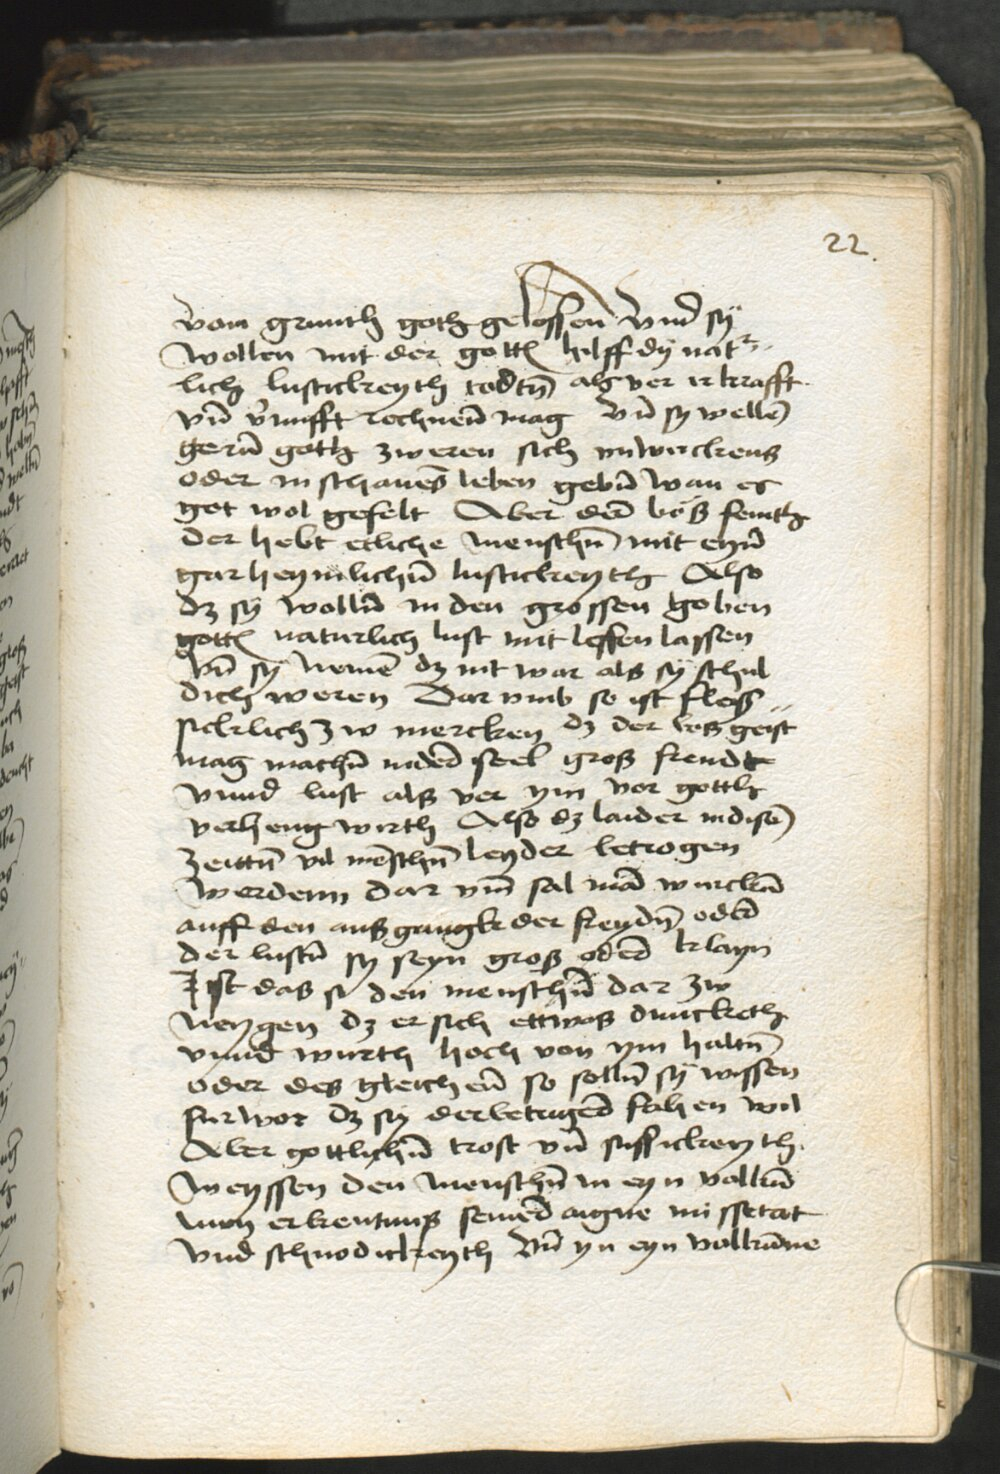 22.
vom grunth goth gelossen Vnd sÿ
wollen mit der gottz hilff dÿ nat
lich lustickeyth todtn̄ als ver ir krafft
vn̄ v̄nufft rechnen̄ mag Vn̄ sy wellē
gern̄ goth zweren sich in wirckens
oder in schauēs leben gebn̄ wan es
got wol gefelt Aber der böß feinth
der hebt etliche menschn̄ mit eynn̄
gar heymlichn̄ lustickeyth Also
dz sÿ wolln̄ in den grossen goben
gottz naturlich lust mit leffen lassen
Vn̄ sÿ nemē dz nit war als sÿ schul
dich weren Dar vmb so ist fleis
sicklich zw mercken dz der böß geist
mag machn̄ in der seel groß freudt
vnnd lust als ver ym vor gotth
verhengt wirth Also dz laider in disē
Zeittn̄ vil mēschn̄ leyder betrogen
werdenn dar vm̄ sal mā mercken
auff den außgangk der freudn̄ oder
der lustn̄ sy seyn groß oder klayn
Ist das si den menschn̄ dar zw
neygen dz er sich ettwas duncketh
vnnd wurth hoch von ym haltn̄
oder des gleichen̄ so solln̄ sÿ wissen
fur wor dz sy der betriger fahen wil
Aber gottlichn̄ trost vn̄ sussickeyth
weyssen den menschn̄ in eyn volkū
men erkentnus seiner aigne missetat
vnd schnodickeyth Vn̄ yn eyn volkūme